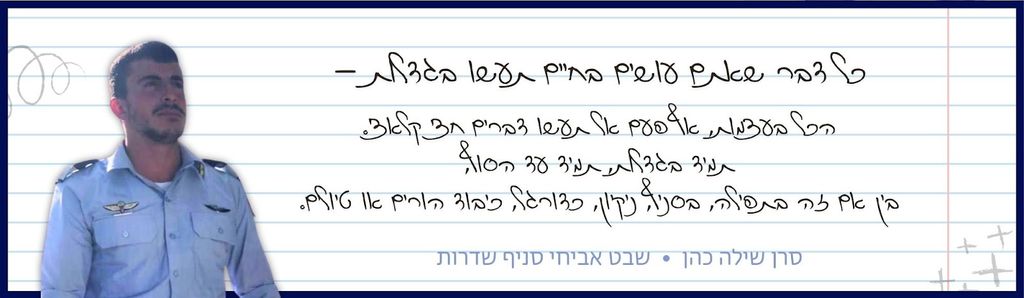 כל דבר שאתם עושים בחיים תעשו בגדלות –
הכל בעצמות, אף פעם אל תעשו דברים חצי קלאץ'.
תמיד בגדלות, תמיד עד הסוף,
בין אם זה בתפילה, בסניף, ניקיון, כדורגל, כיבוד הורים או טיולים.
סרן שילה כהן • שבט אביחי סניף שדרות